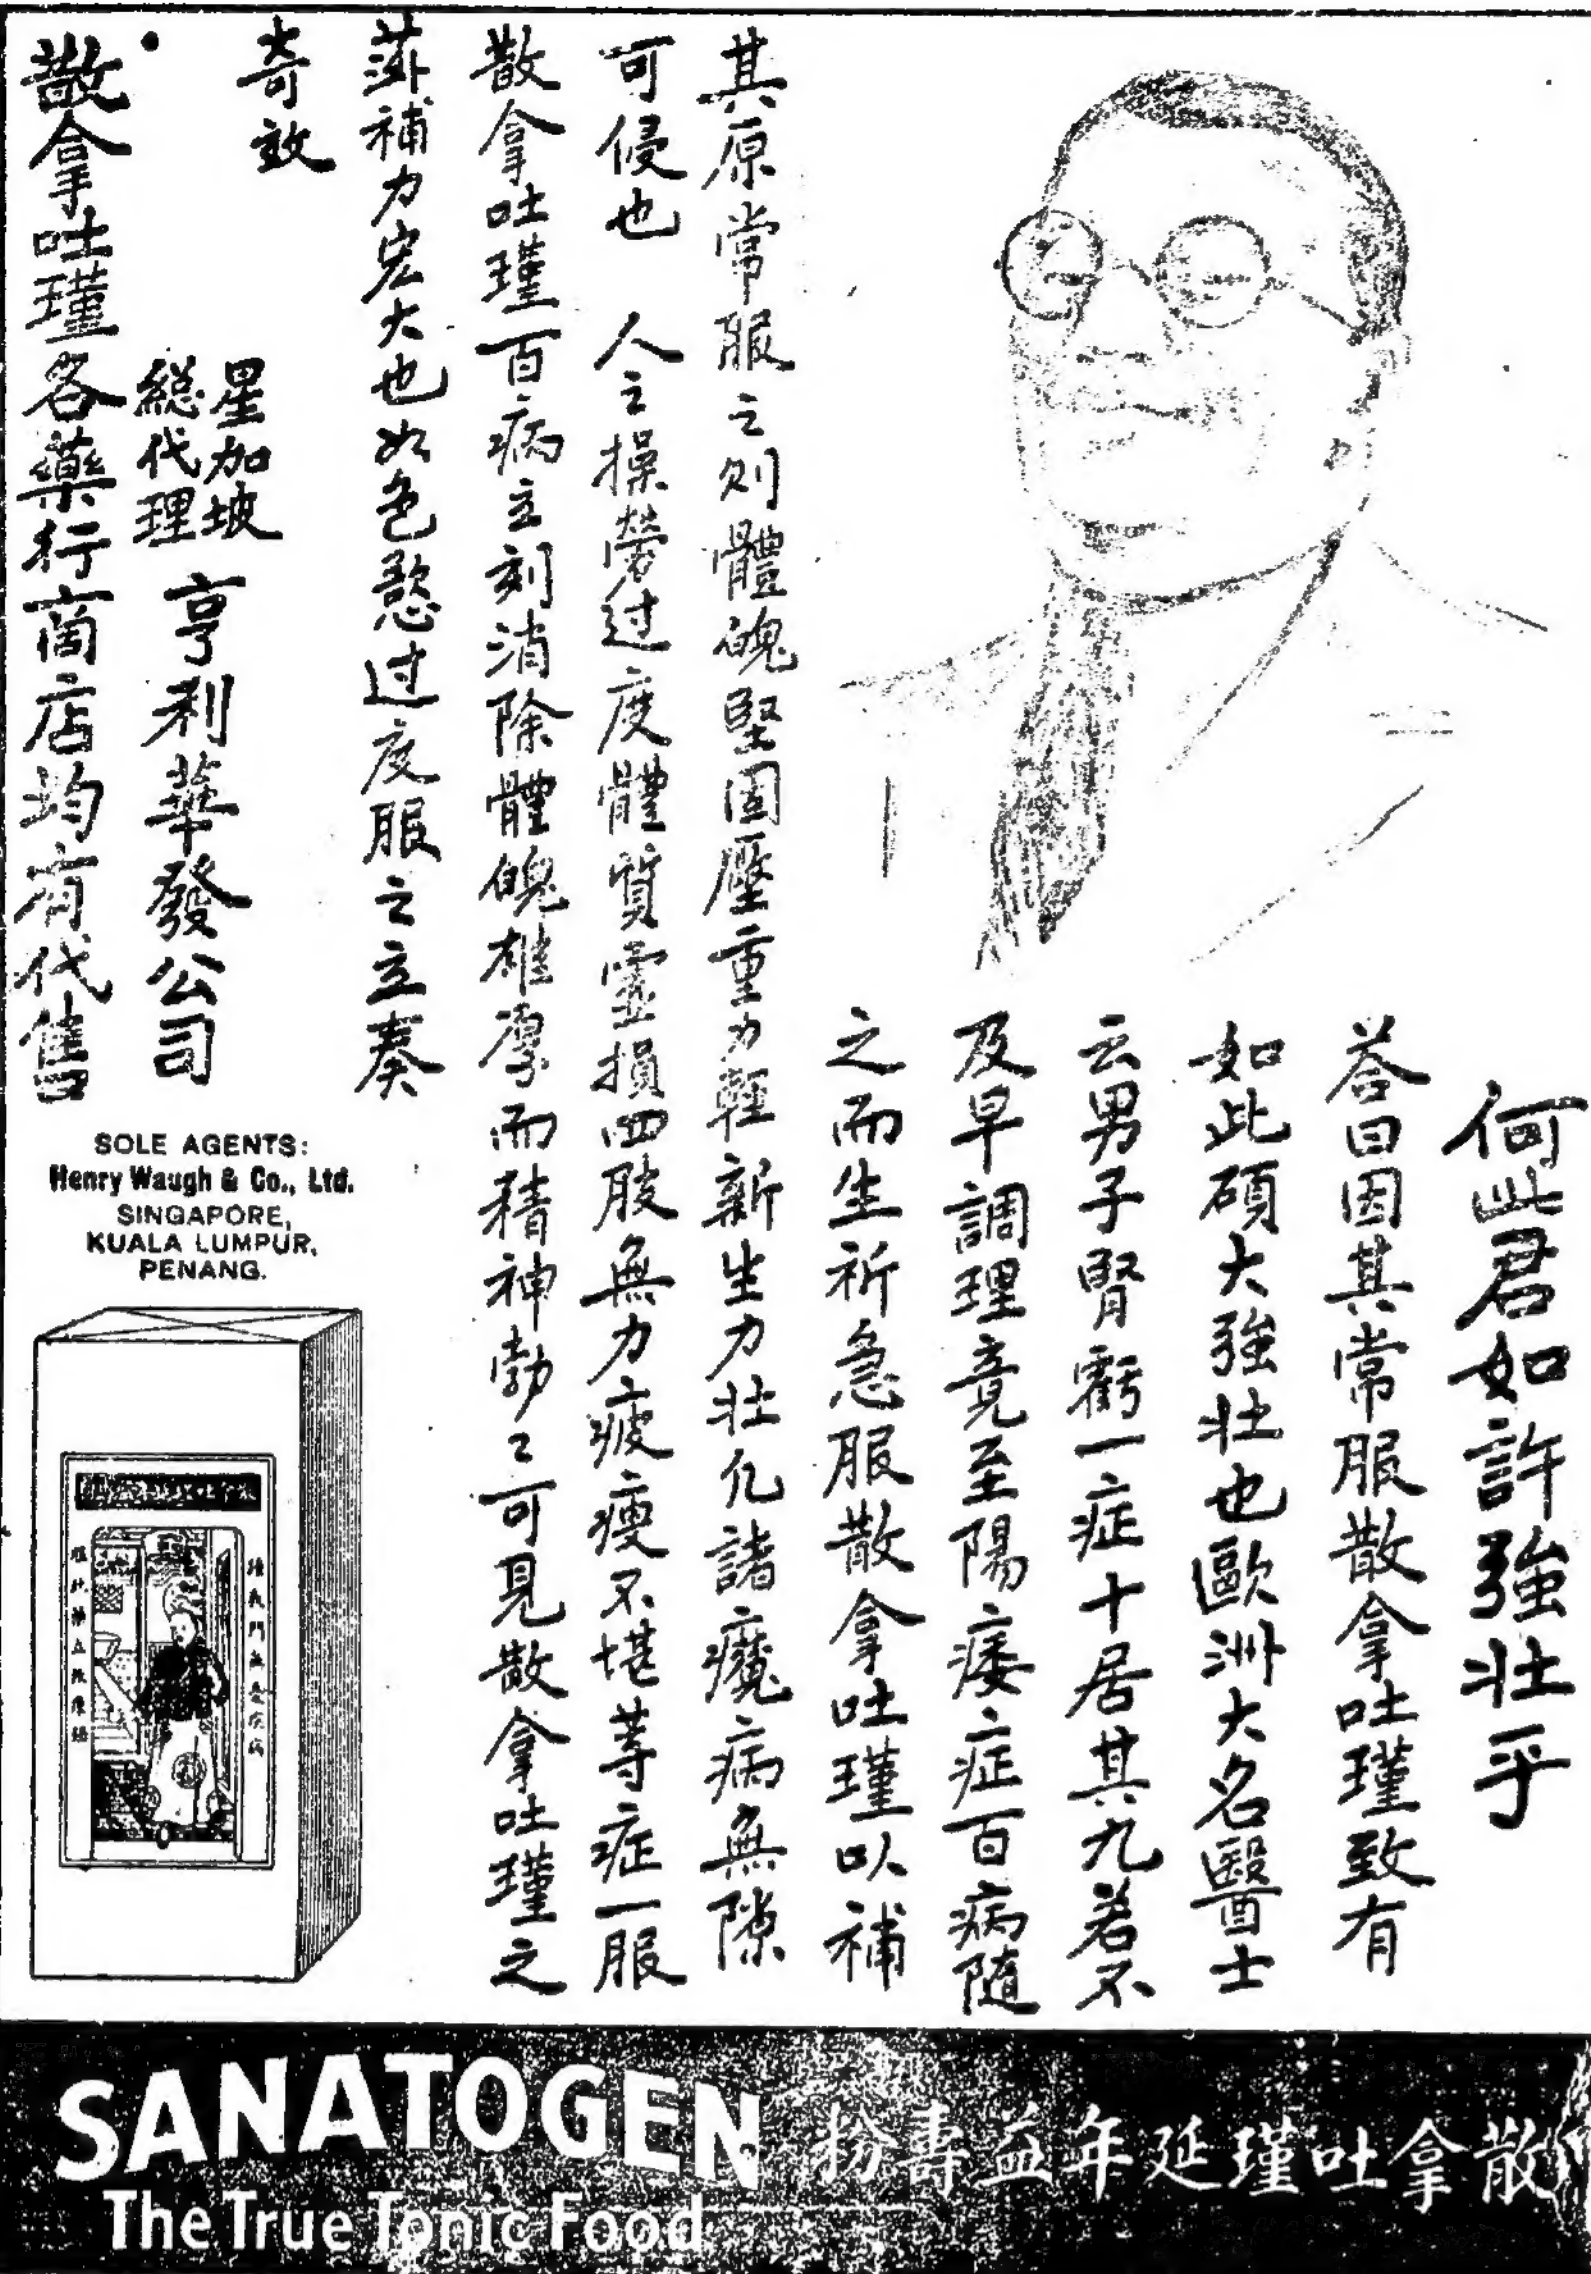 何此君如許強壯乎
荅曰因其常服散拿吐瑾致有
如此碩大強壯也歐洲大名醫士
云男子腎虧一症十居其九若不
及早調理竟至陽痿症百病隨
之而生祈急服散拿吐瑾以補
其原常服之則體魄堅固壓重力輕新生力壯凡諸癥病無隙
可侵也 人之操勞过度體質靈損四肢無力疲瘦不堪等症一服
散拿吐瑾百病立刻消除體魄雄厚而精神勃々可見散拿吐瑾之
補力宏大也如色慾过度服之立奏
奇效
星加坡
総代理
亨利華發公司
散拿吐瑾各藥行商店均有代售
SOLE AGENTS:
Henry Waugh & Co., Ltd.
SINGAPORE,
KUALA LUMPUR,
PENANG.
SANATOGEN
The True Tonic Food
散拿吐瑾延年益壽粉